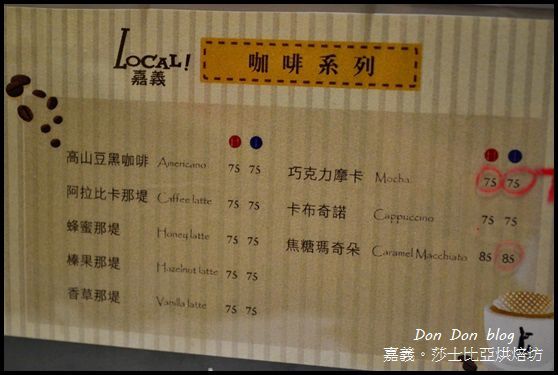 LOCAL!
嘉義
咖啡系列
高山豆黑咖啡 Americano 75 75
阿拉比卡那堤 Caffee latte 75 75
蜂蜜那堤 Honey latte 75 75
榛果那堤 Hazelnut latte 75 75
香草那堤 Vanilla latte 75 75
巧克力摩卡 Mocha 75 75
卡布奇諾 Cappuccino 75 75
焦糖瑪奇朵 Caramel Macchiato 85 85
Don Don blog
嘉義。莎士比亞烘焙坊